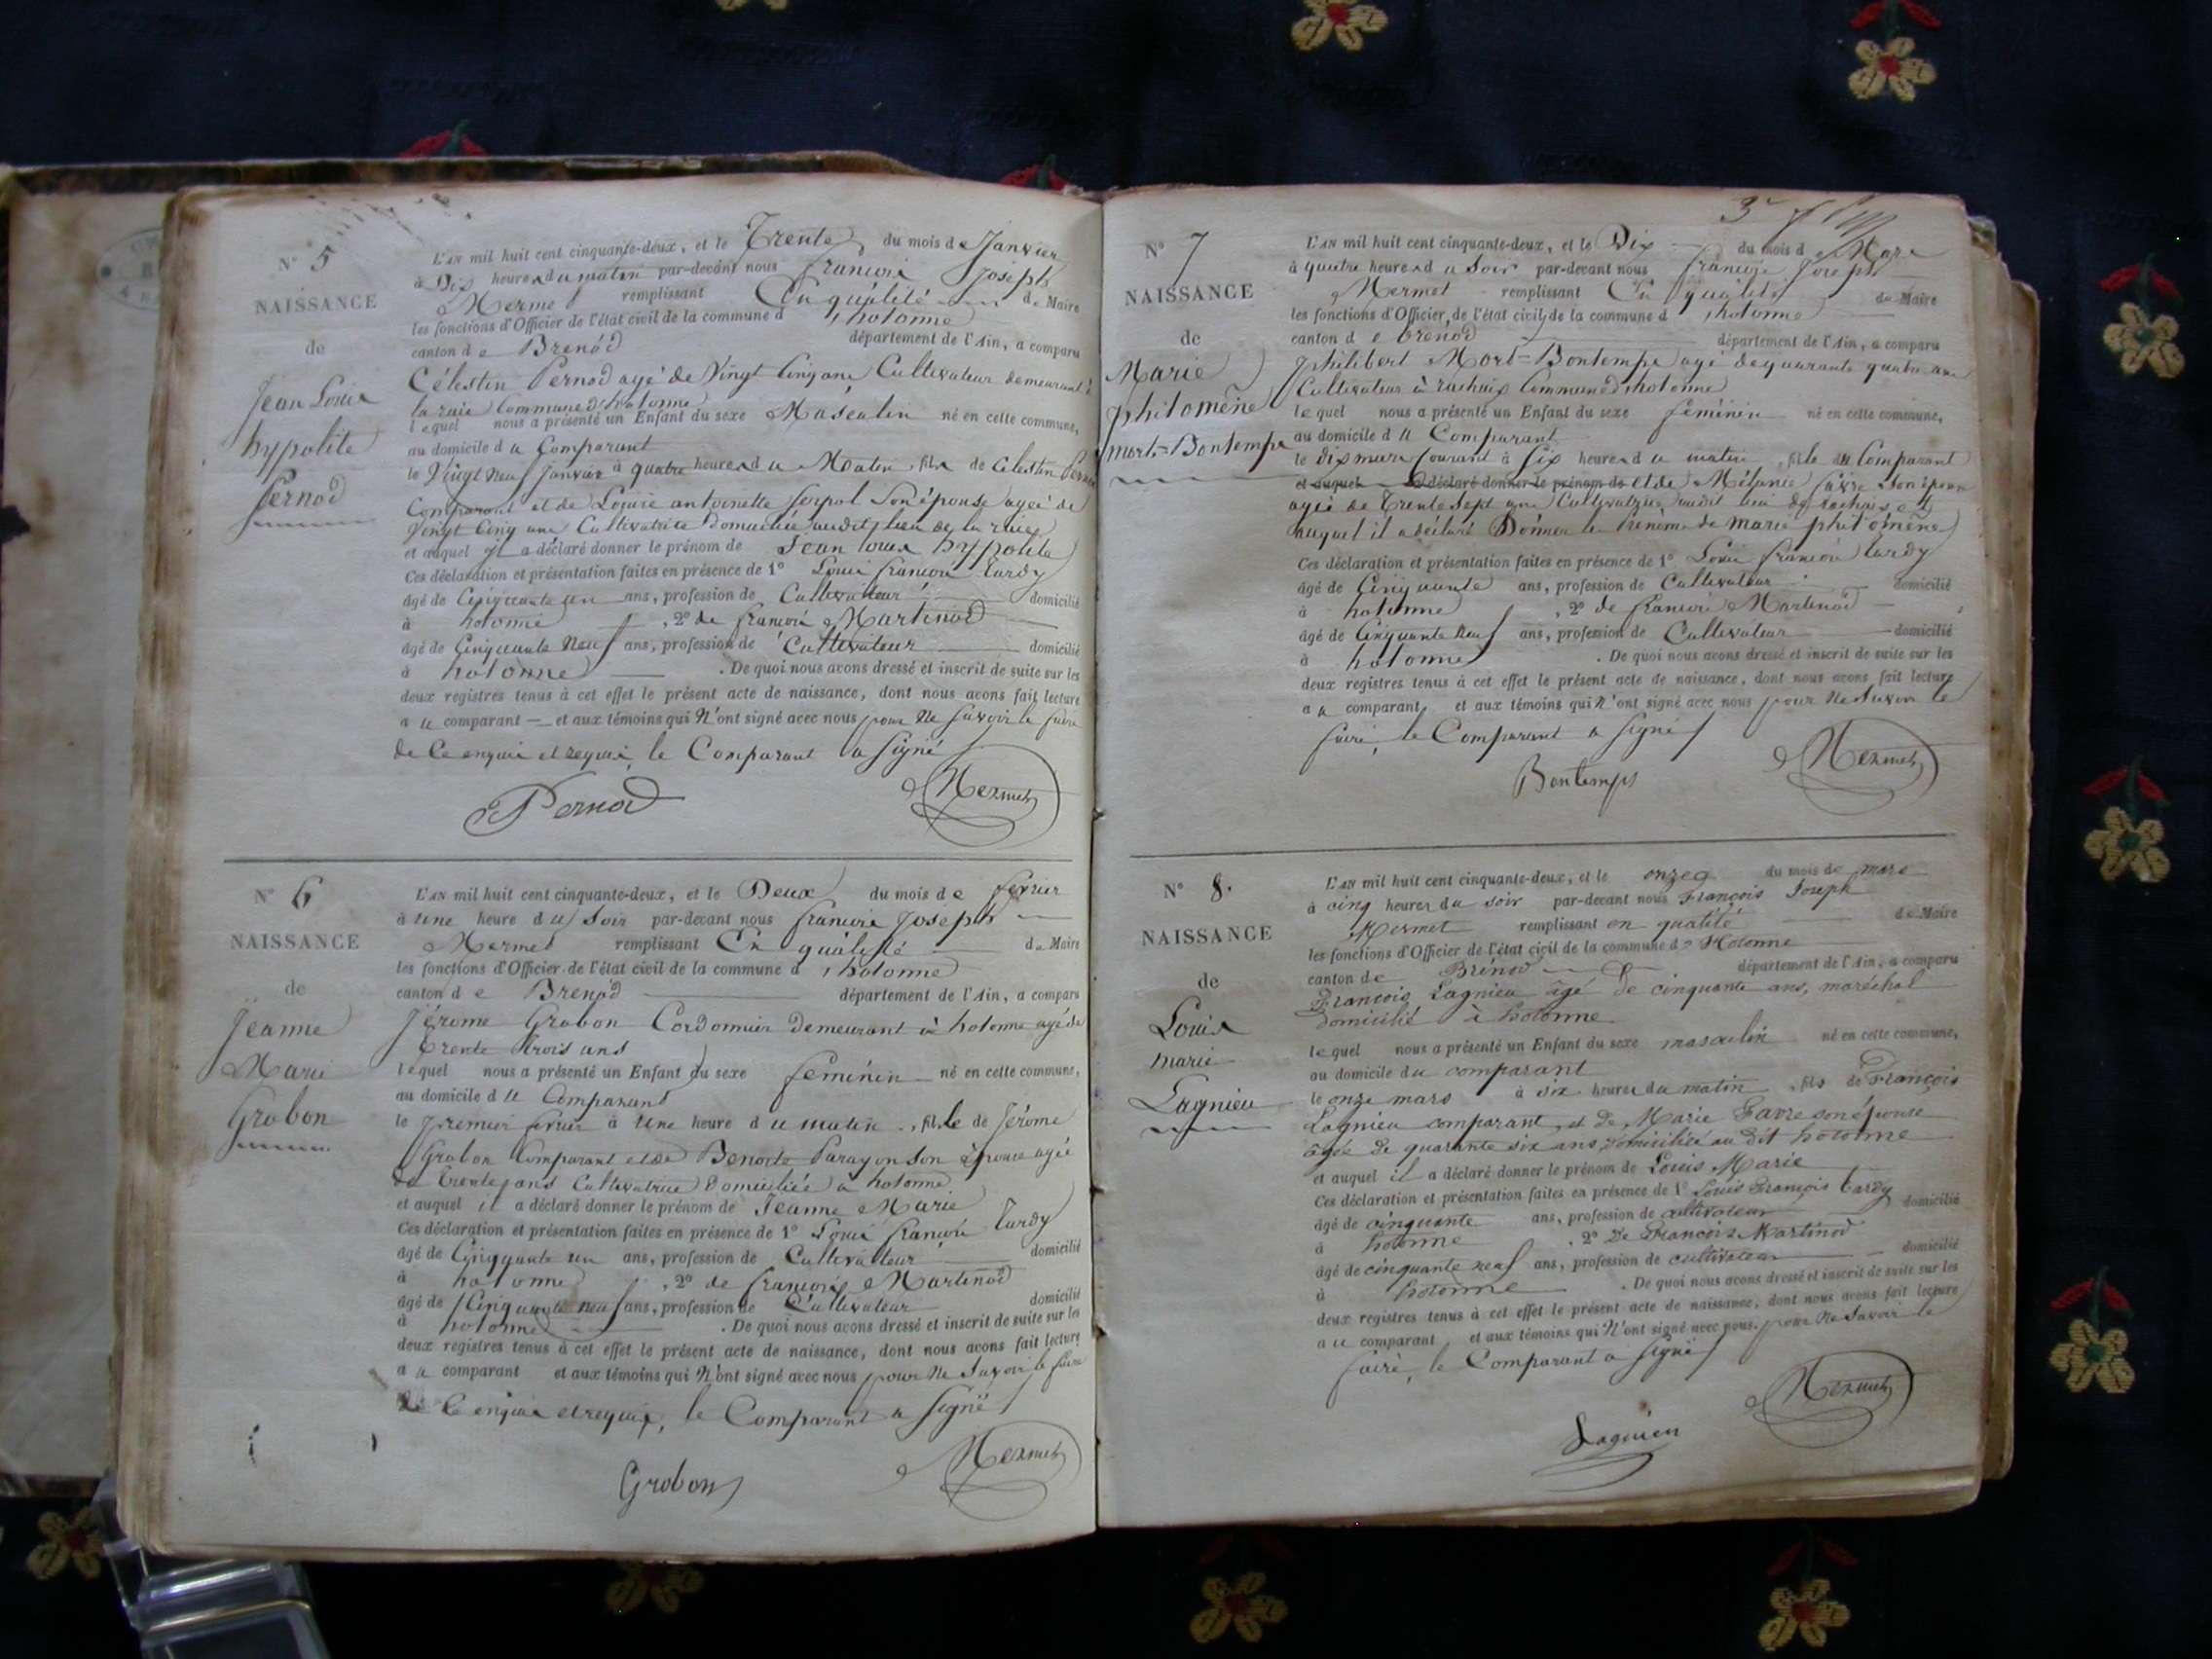 N° 5
NAISSANCE
de
Jean Louis
hypolite
Pernod
L'AN mil huit cent cinquante-deux, et le Trente du mois de Janvier
à Dix heures du matin par-devant nous françois Joseph
Mermet remplissant En qualité de Maire
les fonctions d'Officier de l'état civil de la commune d'hotonne
canton de Brenod département de l'Ain, a comparu
Célestin Pernod agé de Vingt Cinq ans Cultivateur demeurant à
la raie Commune d'hotonne
lequel nous a présenté un Enfant du sexe Masculin né en cette commune,
au domicile du Comparant
le Vingt neuf Janvier à quatre heures du Matin, fils de Célestin Pernod
Comparant et de Louise antoinette son épouse agée de
Vingt Cinq ans Cultivatrice Domiciliée audit lieu de la raie
et auquel il a déclaré donner le prénom de Jean louis hypolite
Ces déclaration et présentation faites en présence de 1° Louis françois tardy
âgé de Cinquante un ans, profession de Cultivateur domicilié
à hotonne, 2° de françois Martinod
âgé de Cinquante Neuf ans, profession de Cultivateur domicilié
à hotonne. De quoi nous avons dressé et inscrit de suite sur les
deux registres tenus à cet effet le présent acte de naissance, dont nous avons fait lecture
au comparant et aux témoins qui N'ont signé avec nous pour Ne Savoir le faire
de Ce enquis et requis, le Comparant a signé
Pernod
Mermet
N° 6
NAISSANCE
de
Jeanne
Marie
Grobon
L'AN mil huit cent cinquante-deux, et le Deux du mois de février
à Une heure du Soir par-devant nous françois Joseph
Mermet remplissant En qualité de Maire
les fonctions d'Officier de l'état civil de la commune d'hotonne
canton de Brenod département de l'Ain, a comparu
Jérome Grobon Cordonnier demeurant à hotonne agé de
trente trois ans
lequel nous a présenté un Enfant du sexe feminin né en cette commune,
au domicile du Comparant
le premier février à Une heure du matin, fille de Jérome
Grobon Comparant et de Benoite Parayon Son épouse agée
de Trente ans Cultivatrice Domiciliée a hotonne
et auquel il a déclaré donner le prénom de Jeanne Marie
Ces déclaration et présentation faites en présence de 1° Louis françois tardy
âgé de Cinquante un ans, profession de Cultivateur domicilié
à hotonne, 2° de françois Martinod
âgé de Cinquante neuf ans, profession de Cultivateur domicilié
à hotonne. De quoi nous avons dressé et inscrit de suite sur les
deux registres tenus à cet effet le présent acte de naissance, dont nous avons fait lecture
au comparant et aux témoins qui N'ont signé avec nous pour Ne Savoir le faire
de Ce enquis et requis, le Comparant a signé
Grobon
Mermet
3e
N° 7
NAISSANCE
de
Marie
philomène
mort-Bontemps
L'AN mil huit cent cinquante-deux, et le Dix du mois de Mars
à quatre heures du Soir par-devant nous françois Joseph
Mermet remplissant En qualité de Maire
les fonctions d'Officier de l'état civil de la commune d'hotonne
canton de brenod département de l'Ain, a comparu
philibert Mort-Bontemps agé de quarante quatre ans
Cultivateur à Commune d'hotonne
lequel nous a présenté un Enfant du sexe féminin né en cette commune,
au domicile du Comparant
le dix mars Courant à Six heures du matin, fille du Comparant
et auquel a déclaré donner le prénom de et de Mélanie favre son épouse
agée de Trente Sept ans Cultivatrice, audit lieu de et
auquel il a déclaré Donner le Prénoms de marie philomène
Ces déclaration et présentation faites en présence de 1° Louis françois tardy
âgé de Cinquante ans, profession de Cultivateur domicilié
à hotonne, 2° de françois Martinod
âgé de Cinquante Neuf ans, profession de Cultivateur domicilié
à hotonne. De quoi nous avons dressé et inscrit de suite sur les
deux registres tenus à cet effet le présent acte de naissance, dont nous avons fait lecture
au comparant, et aux témoins qui N'ont signé avec nous pour Ne Savoir le
faire, le Comparant a signé
Bontemps
Mermet
N° 8.
NAISSANCE
de
Louis
marie
Lagnieu
L'AN mil huit cent cinquante-deux, et le onze du mois de mars
à cinq heures du soir par-devant nous François Joseph
Mermet remplissant en qualité de Maire
les fonctions d'Officier de l'état civil de la commune d'Hotonne
canton de Brénod département de l'Ain, a comparu
François Lagnieu âgé de cinquante ans, maréchal
domicilié à hotonne
lequel nous a présenté un Enfant du sexe masculin né en cette commune,
au domicile du comparant
le onze mars à six heures du matin, fils de François
Lagnieu comparant, et de Marie Favre son épouse
âgée de quarante six ans, domiciliée au dit hotonne
et auquel il a déclaré donner le prénom de Louis Marie
Ces déclaration et présentation faites en présence de 1° Louis François tardy
âgé de cinquante ans, profession de cultivateur domicilié
à hotonne, 2° De François Martinod
âgé de cinquante neuf ans, profession de cultivateur domicilié
à hotonne. De quoi nous avons dressé et inscrit de suite sur les
deux registres tenus à cet effet le présent acte de naissance, dont nous avons fait lecture
au comparant, et aux témoins qui N'ont signé avec nous. pour Ne Savoir le
faire, le Comparant a signé
Lagnieu
Mermet